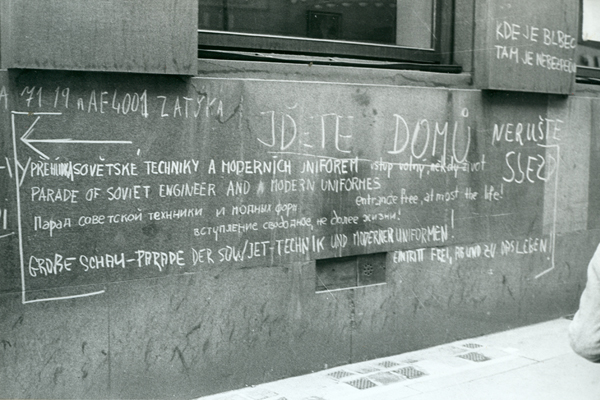 KDE JE BLBEC
TAM JE NEBEZPEČNO
71-19 AF4001 ZATÝKÁ
JDĚTE DOMŮ
NERUŠTE
SJEZD
PŘEHLÍDKA SOVĚTSKÉ TECHNIKY A MODERNÍCH UNIFOREM vstup volný, někdy život
PARADE OF SOVIET ENGINEER AND A MODERN UNIFORMES
entrance free, at most the life!
Парад советской техники и модных форм
вступление свободное, не далее жизни!
GROßE SCHAU-PARADE DER SOWJET-TECHNIK UND MODERNER UNIFORMEN!
EINTRITT FREI, AB UND ZU DAS LEBEN!